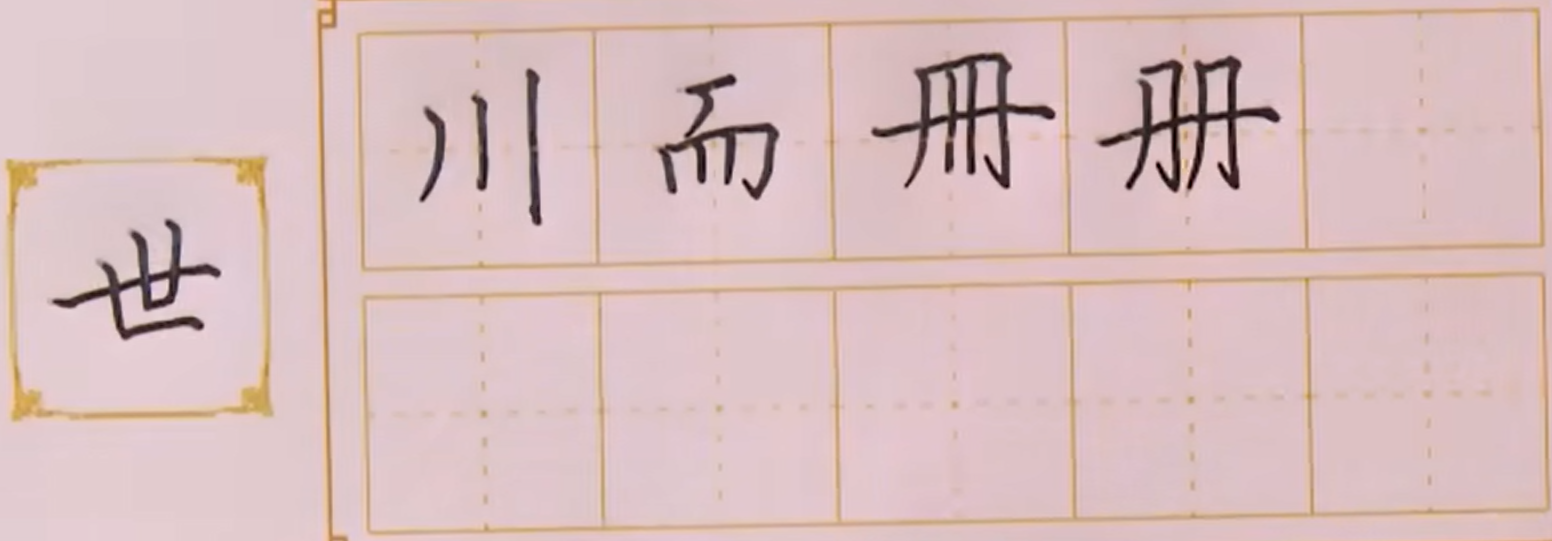 世
川而冊册